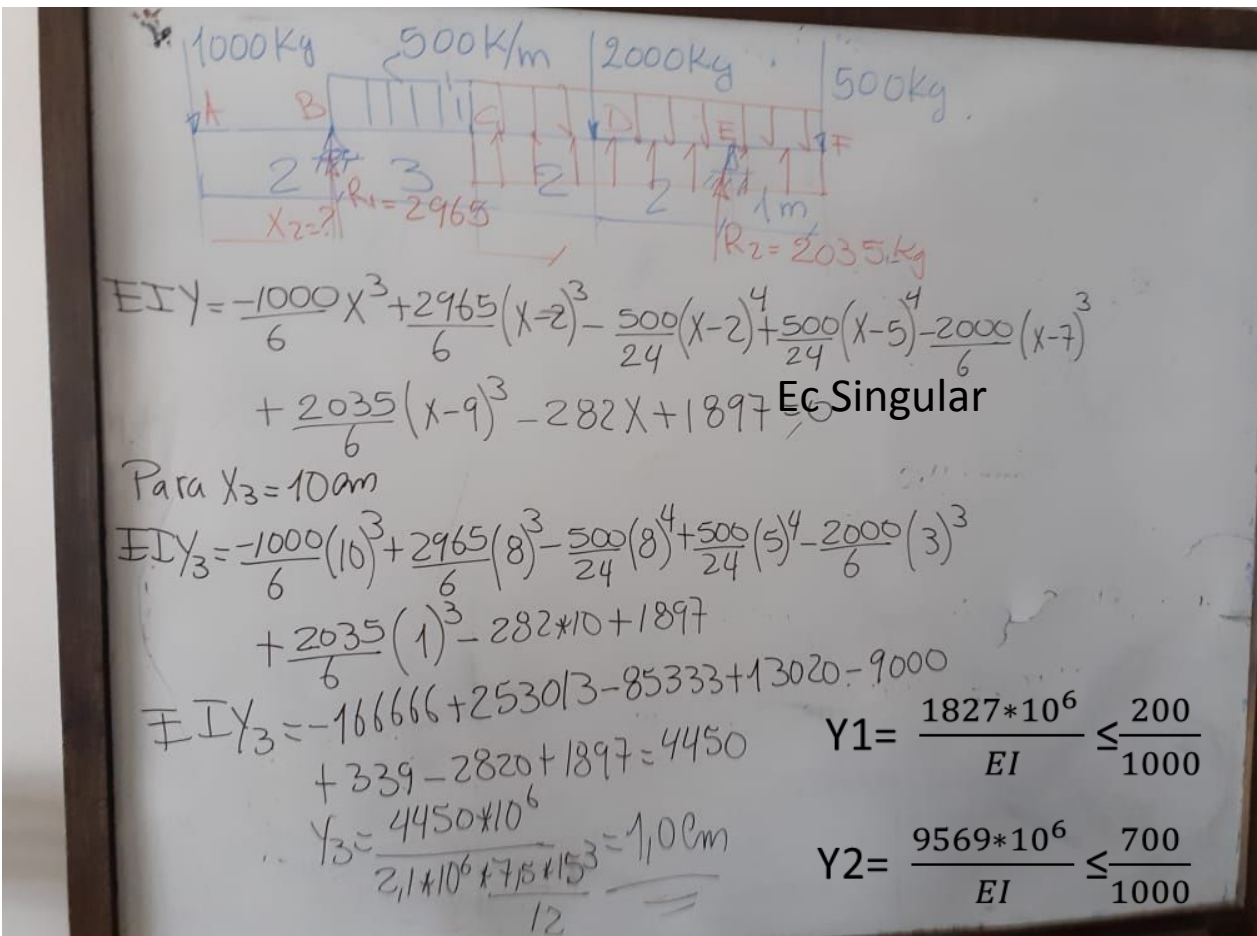 1000Kg 500K/m 2000Kg 500Kg.
A B C D E F
2 3 2 2 1m
X₂=? R₁=2965
R₂=2035.kg
EIY = -1000/6 X³ + 2965/6 (X-2)³ - 500/24 (X-2)⁴ + 500/24 (X-5)⁴ - 2000/6 (X-7)³
+ 2035/6 (X-9)³ - 282X + 1897 = 0 Ec Singular
Para X₃ = 10 am
EIY₃ = -1000/6 (10)³ + 2965/6 (8)³ - 500/24 (8)⁴ + 500/24 (5)⁴ - 2000/6 (3)³
+ 2035/6 (1)³ - 282*10 + 1897
EIY₃ = -166666 + 253013 - 85333 + 13020 - 9000
+ 339 - 2820 + 1897 = 4450
Y₃ = 4450*10⁶ / 2,1*10⁶*7,5*15³/12 = 1,0 Cm
Y1= 1827*10⁶/EI ≤ 200/1000
Y2= 9569*10⁶/EI ≤ 700/1000